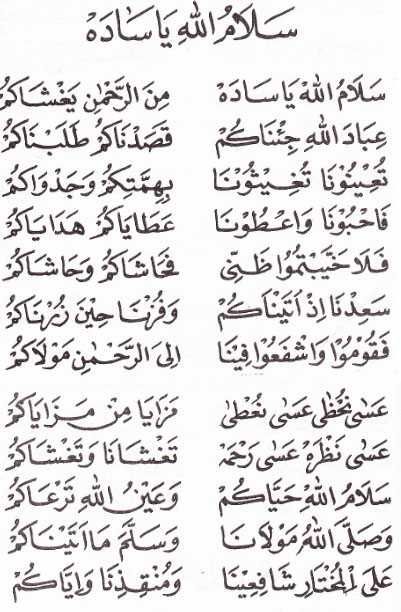 سَلَامُ اللهِ يَا سَادَهْ
سَلَامُ اللهِ يَا سَادَهْ مِنَ الرَّحْمٰنِ يَغْشَاكُمْ
عِبَادَ اللهِ جِئْنَاكُمْ قَصَدْنَاكُمْ طَلَبْنَاكُمْ
تُعِيْنُوْنَا تُغِيْثُوْنَا بِهِمَّتِكُمْ وَجَدْوَاكُمْ
فَاحْبُوْنَا وَاعْطُوْنَا عَطَايَاكُمْ هَدَايَاكُمْ
فَلَا خَيَّبْتُمُوْا ظَنِّى فَحَاشَاكُمْ وَحَاشَاكُمْ
سَعِدْنَا اِذْ اَتَيْنَاكُمْ وَفُزْنَا حِيْنَ زُرْنَاكُمْ
فَقُوْمُوْا وَاشْفَعُوْا فِيْنَا اِلَى الرَّحْمٰنِ مَوْلَاكُمْ
عَسٰى نُحْظٰى عَسٰى نُعْطٰى مَزَايَا مِنْ مَزَايَاكُمْ
عَسٰى نَظْرَهْ عَسٰى رَحْمَهْ تَغْشَانَا وَتَغْشَاكُمْ
سَلَامُ اللهِ حَيَّاكُمْ وَعَيْنُ اللهِ تَرْعَاكُمْ
وَصَلَّى اللهُ مَوْلَانَا وَسَلَّمَ مَا اَتَيْنَاكُمْ
عَلَى الْمُخْتَارِ شَافِعِيْنَا وَمُنْقِذِنَا وَاِيَّاكُمْ